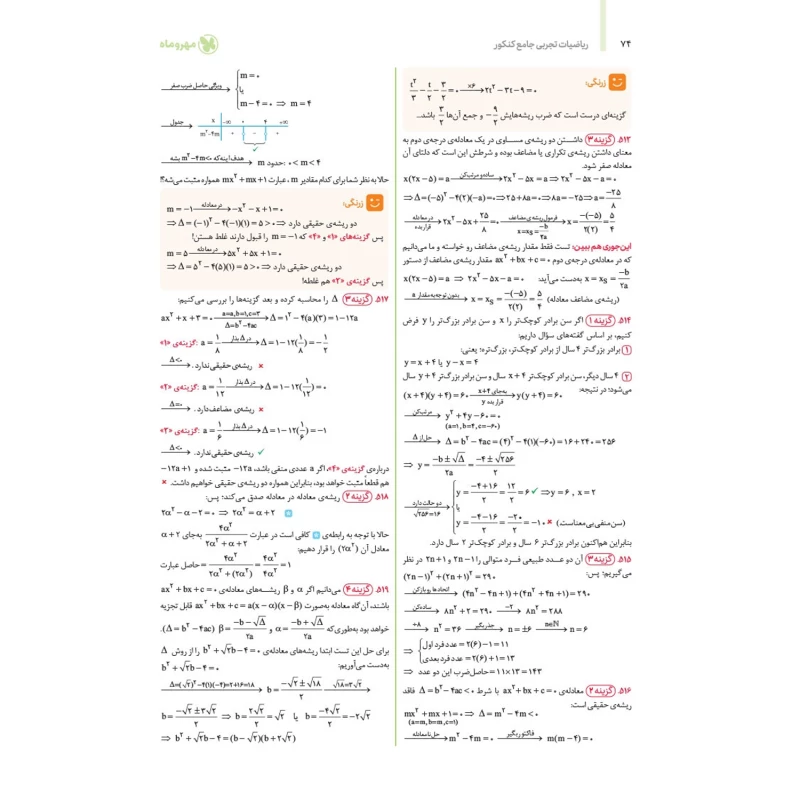 ۷۴ ریاضیات تجربی جامع کنکور
مهروماه
زرنگی:
t²/۳ - t/۲ - ۳/۲ = ۰ —×۶→ ۲t² - ۳t - ۹ = ۰
گزینه‌ای درست است که ضرب ریشه‌هایش -۹/۲ و جمع آن‌ها ۳/۲ باشد..
۵۱۳. گزینه ۳ داشتن دو ریشه‌ی مساوی در یک معادله‌ی درجه‌ی دوم به
معنای داشتن ریشه‌ی تکراری یا مضاعف بوده و شرطش این است که دلتای آن
معادله صفر شود.
x(۲x - ۵) = a —ساده و مرتب کن→ ۲x² - ۵x = a ⇒ ۲x² - ۵x - a = ۰
⇒ Δ = (-۵)² - ۴(۲)(-a) = ۰ ⇒ ۲۵ + ۸a = ۰ ⇒ ۸a = -۲۵ ⇒ a = -۲۵/۸
—در معادله قرار بده→ ۲x² - ۵x + ۲۵/۸ = ۰ —فرمول ریشه‌ی مضاعف x = xs = -b/۲a→ x = -(-۵)/۲(۲) = ۵/۴
این‌جوری هم ببین: تست فقط مقدار ریشه‌ی مضاعف رو خواسته و ما می‌دانیم
که در معادله‌ی درجه‌ی دوم ax² + bx + c = ۰ مقدار ریشه‌ی مضاعف از دستور
x = xs = -b/۲a به‌دست می‌آید: x(۲x - ۵) = a ⇒ ۲x² - ۵x - a = ۰
—بدون توجه به مقدار a→ x = xs = -(-۵)/۲(۲) = ۵/۴ (ریشه‌ی مضاعف معادله)
۵۱۴. گزینه ۱ اگر سن برادر کوچک‌تر را x و سن برادر بزرگ‌تر را y فرض
کنیم، بر اساس گفته‌های سؤال داریم:
۱ برادر بزرگ‌تر ۴ سال از برادر کوچک‌تر، بزرگ‌تره؛ یعنی:
y - x = ۴ یا y = x + ۴
۲ ۴ سال دیگر، سن برادر کوچک‌تر x + ۴ سال و سن برادر بزرگ‌تر y + ۴ سال
می‌شود؛ در نتیجه: (x + ۴)(y + ۴) = ۶۰ —به‌جای x + ۴ قرار بده y→ y(y + ۴) = ۶۰
—مرتب کن→ y² + ۴y - ۶۰ = ۰
(a=۱, b=۴, c=-۶۰)
—حل از Δ→ Δ = b² - ۴ac = (۴)² - ۴(۱)(-۶۰) = ۱۶ + ۲۴۰ = ۲۵۶
⇒ y = (-b ± √Δ)/۲a = (-۴ ± √۲۵۶)/۲
—دو حالت دارد √۲۵۶ = ۱۶→ y = (-۴ + ۱۶)/۲ = ۱۲/۲ = ۶ ✓ ⇒ y = ۶ , x = ۲
یا
y = (-۴ - ۱۶)/۲ = -۲۰/۲ = -۱۰ × (سن منفی بی‌معناست)
بنابراین هم‌اکنون برادر بزرگ‌تر ۶ سال و برادر کوچک‌تر ۲ سال دارد.
۵۱۵. گزینه ۳ آن دو عدد طبیعی فرد متوالی را ۲n - ۱ و ۲n + ۱ در نظر
می‌گیریم؛ پس: (۲n - ۱)² + (۲n + ۱)² = ۲۹۰
—اتحادها رو باز کن→ (۴n² - ۴n + ۱) + (۴n² + ۴n + ۱) = ۲۹۰
—ساده کن→ ۸n² + ۲ = ۲۹۰ —-۲→ ۸n² = ۲۸۸
—÷۸→ n² = ۳۶ —جذر بگیر→ n = ±۶ —n∈ℕ→ n = ۶
⇒ عدد فرد اول = ۲(۶) - ۱ = ۱۱
عدد فرد بعدی = ۲(۶) + ۱ = ۱۳
⇒ حاصل‌ضرب این دو عدد = ۱۱ × ۱۳ = ۱۴۳
۵۱۶. گزینه ۲ معادله‌ی ax² + bx + c = ۰ با شرط Δ = b² - ۴ac < ۰ فاقد
ریشه‌ی حقیقی است:
mx² + mx + ۱ = ۰ ⇒ Δ = m² - ۴m < ۰
(a=m, b=m, c=۱)
—حل نامعادله→ m² - ۴m = ۰ —فاکتور بگیر→ m(m - ۴) = ۰
—ویژگی حاصل ضرب صفر→ m = ۰
یا
m - ۴ = ۰ ⇒ m = ۴
—جدول→ x -∞ ۰ ۴ +∞
m² - ۴m + ۰ - ۰ +
✓
—هدف اینه که m² - ۴m < ۰ بشه→ حدود m: ۰ < m < ۴
حالا به نظر شما برای کدام مقادیر m، عبارت mx² + mx + ۱ همواره مثبت می‌شه؟!
زرنگی:
m = -۱ —در معادله→ -x² - x + ۱ = ۰
⇒ Δ = (-۱)² - ۴(-۱)(۱) = ۵ > ۰ ⇒ دو ریشه‌ی حقیقی دارد
پس گزینه‌های «۱» و «۴» که m = -۱ را قبول دارند غلط هستن!
m = ۵ —در معادله→ ۵x² + ۵x + ۱ = ۰
⇒ Δ = ۵² - ۴(۵)(۱) = ۵ > ۰ ⇒ دو ریشه‌ی حقیقی دارد
پس گزینه‌ی «۳» هم غلطه!
۵۱۷. گزینه ۳ Δ را محاسبه کرده و بعد گزینه‌ها را بررسی می‌کنیم:
ax² + x + ۳ = ۰ —a=a, b=۱, c=۳ Δ=b²-۴ac→ Δ = ۱² - ۴(a)(۳) = ۱ - ۱۲a
گزینه‌ی «۱»: a = ۱/۸ —در Δ بذار→ Δ = ۱ - ۱۲(۱/۸) = -۱/۲
—Δ<۰→ ریشه‌ی حقیقی ندارد. ×
گزینه‌ی «۲»: a = ۱/۱۲ —در Δ بذار→ Δ = ۱ - ۱۲(۱/۱۲) = ۰
—Δ=۰→ ریشه‌ی مضاعف دارد. ×
گزینه‌ی «۳»: a = ۱/۶ —در Δ بذار→ Δ = ۱ - ۱۲(۱/۶) = -۱
—Δ<۰→ ریشه‌ی حقیقی ندارد. ✓
درباره‌ی گزینه‌ی «۴»، اگر a عددی منفی باشد، -۱۲a مثبت شده و -۱۲a + ۱
هم قطعاً مثبت خواهد بود، بنابراین همواره دو ریشه‌ی حقیقی خواهیم داشت. ×
۵۱۸. گزینه ۲ ریشه‌ی معادله در معادله صدق می‌کند؛ پس:
۲α² - α - ۲ = ۰ ⇒ ۲α² = α + ۲
حالا با توجه به رابطه‌ی کافی است در عبارت ۴α²/(۲α² + α + ۲) به‌جای α + ۲
معادل آن (۲α²) را قرار دهیم:
حاصل عبارت = ۴α²/(۲α² + (۲α²)) = ۴α²/۴α² = ۱
۵۱۹. گزینه ۴ می‌دانیم اگر α و β ریشه‌های معادله‌ی ax² + bx + c = ۰
باشند، آن گاه معادله به‌صورت ax² + bx + c = a(x - α)(x - β) قابل تجزیه
خواهد بود به‌طوری‌که α = (-b + √Δ)/۲a و β = (-b - √Δ)/۲a (Δ = b² - ۴ac).
برای حل این تست ابتدا ریشه‌های معادله‌ی b² + √۲b - ۴ = ۰ را از روش Δ
به‌دست می‌آوریم: b² + √۲b - ۴ = ۰
—Δ=(√۲)²-۴(۱)(-۴)=۲+۱۶=۱۸→ b = (-√۲ ± √۱۸)/۲ —√۱۸=۳√۲→
b = (-√۲ ± ۳√۲)/۲ ⇒ b = ۲√۲/۲ = √۲ یا b = -۴√۲/۲ = -۲√۲
⇒ b² + √۲b - ۴ = (b - √۲)(b + ۲√۲)